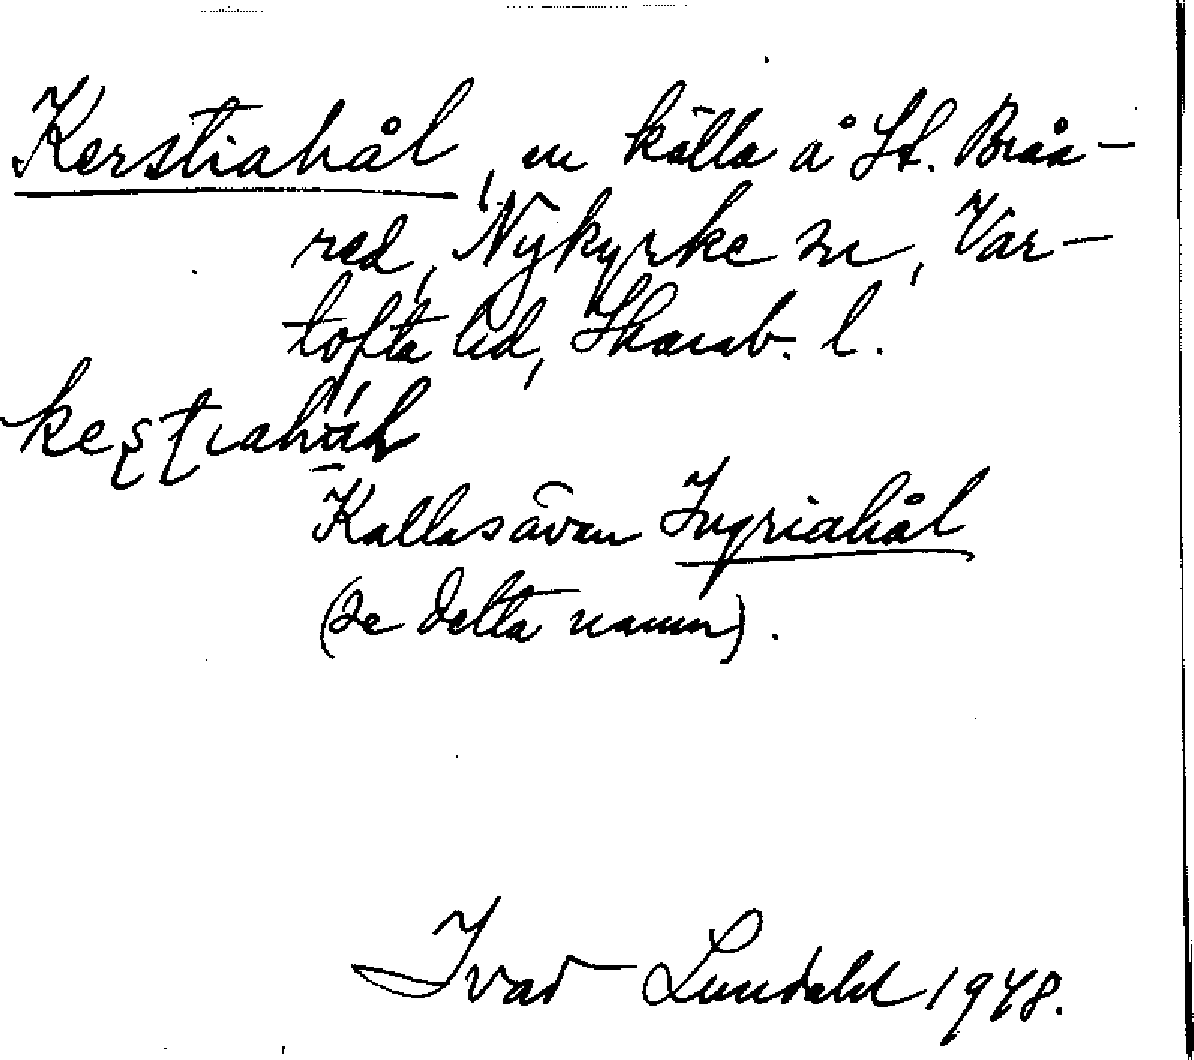 Kerstiahål, en källa å St. Bråa-
red, Nykyrke sn, Var-
tofta hd, Skarab. l.
Kallas även Ingriahål
(se detta namn).
Ivar Lundahl 1948.